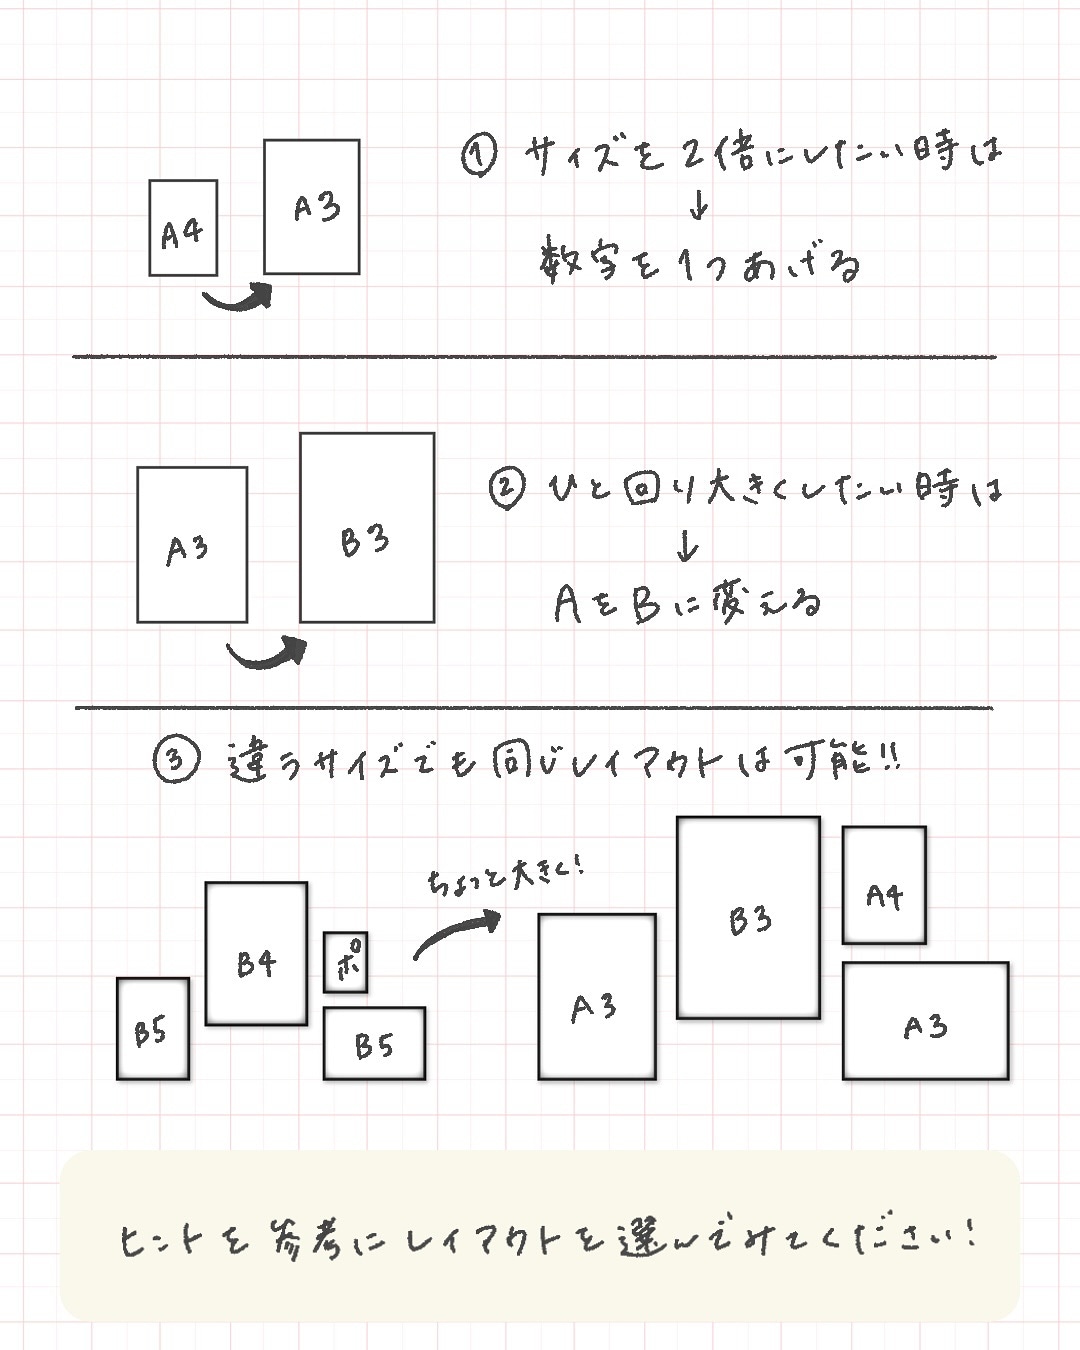 ① サイズを2倍にしたい時は
↓
数字を1つあげる
A4
A3
② ひと回り大きくしたい時は
↓
AをBに変える
A3
B3
③ 違うサイズでも同じレイアウトは可能!!
ちょっと大きく!
B5
B4
ポ
B5
A3
B3
A4
A3
ヒントを参考にレイアウトを選んでみてください!